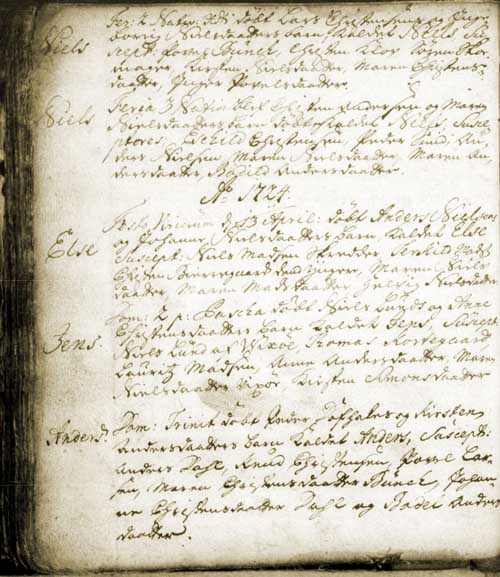 Niels
Fer: 2 Nativ: døbt Lars Christensens og Inge-
borrig Nielsdaatters barn kaldet Niels Su-
scept: Povel Bunet, Christen
Kirsten Nielsdaatter, Maren Christens-
daatter, Povelsdaatter.
Niels
Feria 3 Nativ: Christen Andersen og Maren
Nielsdaatters barn kaldet Niels, Suscep-
tores: Christensen, Peder An-
ders Nielsen, Maren Nielsdaatter, Maren An-
dersdaatter Bodild Andersdaatter.
Ao 1724.
Else
Festo d 13 April: døbt Anders Nielsens
og Johanne Nielsdaatters barn kaldet Else
Suscept: Niels Madsen Skredder, Mads
Christen Maren Niels
daatter, Maren Madsdaatter Nielsdaatter
Jens.
Dom: 2 p: Pascha døbt Niels Lunds og Anne
Christensdaatters barn kaldet Jens, Suscept
Niels Lund af Thomas
Lauriz Madsen, Anne Andersdaatter, Maren
Nielsdaatter Kirsten Simonsdaatter
Anders.
Dom: Trinit døbt Peder og Kirsten
Andersdaatters barn kaldet Anders, Suscept:
Anders Dahl, Knud Christensen, Povel Lar-
sen, Maren Christensdaatter Bunet, Johan-
ne Christensdaatter Dahl og Bodel Anders
daatter.